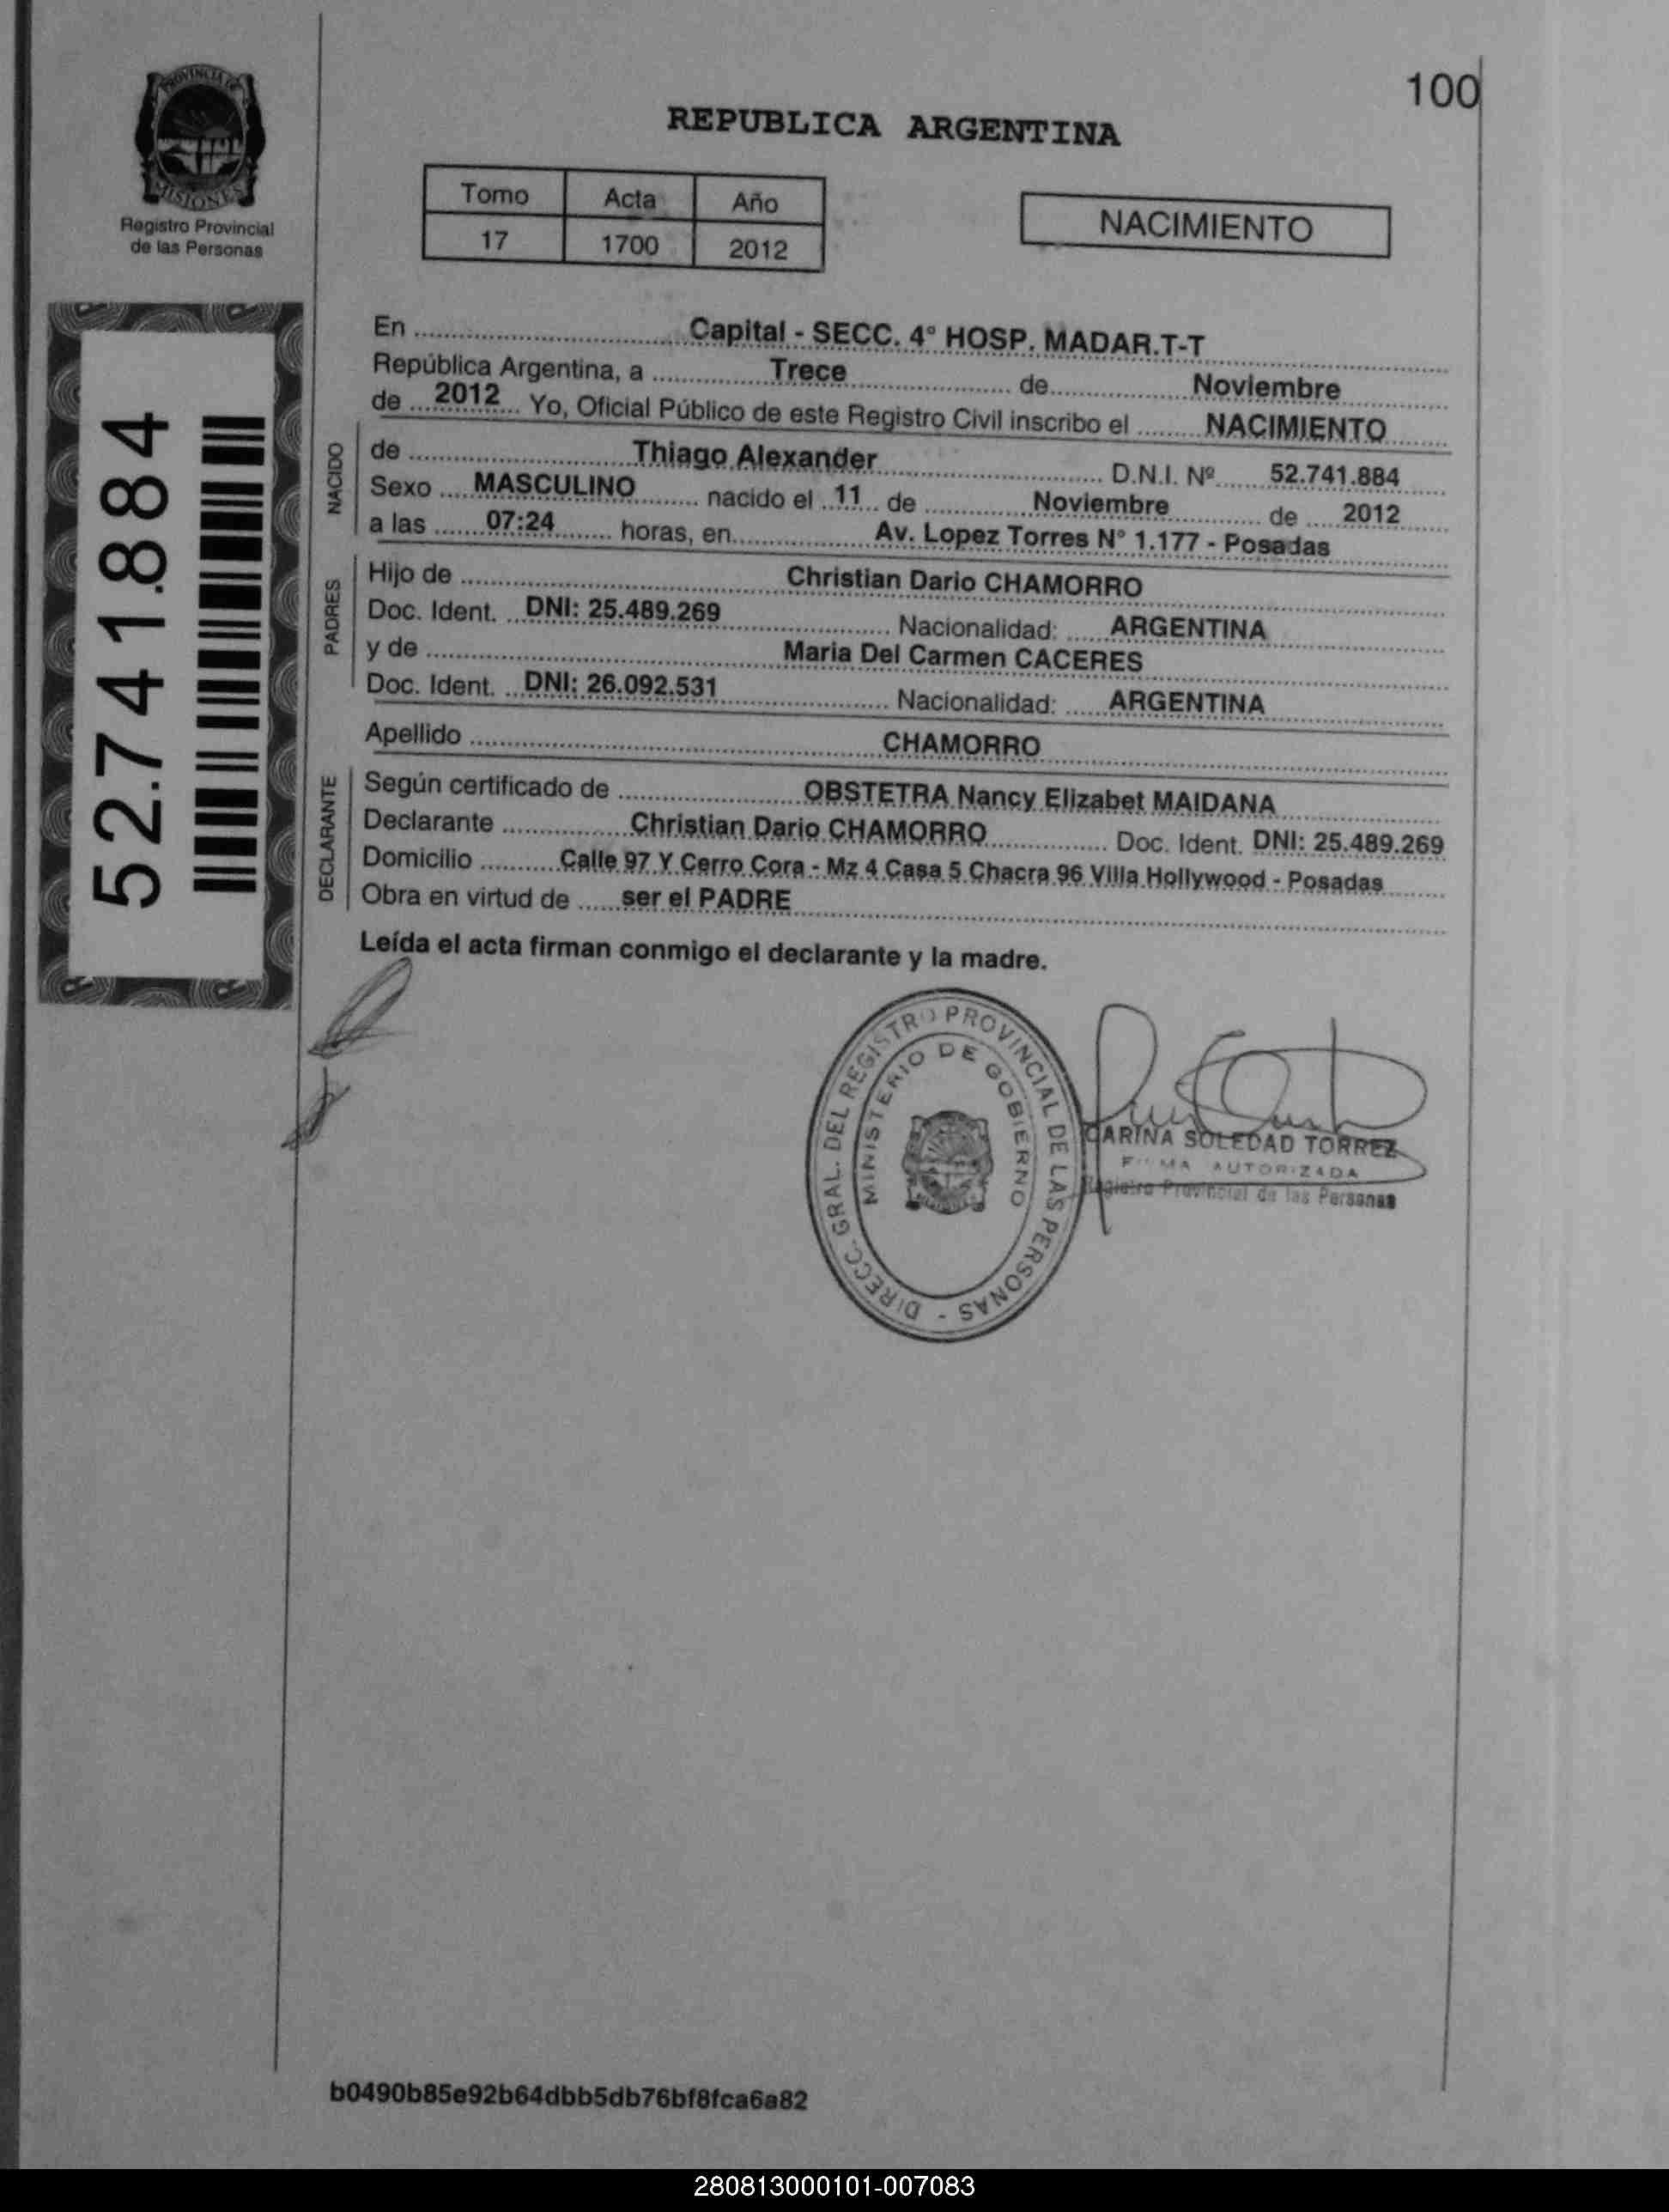 100
PROVINCIA DE
MISIONES
Registro Provincial
de las Personas
REPUBLICA ARGENTINA
Tomo Acta Año
17 1700 2012
NACIMIENTO
52.741.884
En Capital - SECC. 4º HOSP. MADAR.T-T
República Argentina, a Trece de Noviembre
de 2012 Yo, Oficial Público de este Registro Civil inscribo el NACIMIENTO
NACIDO
de Thiago Alexander D.N.I. Nº 52.741.884
Sexo MASCULINO nacido el 11 de Noviembre de 2012
a las 07:24 horas, en Av. Lopez Torres N° 1.177 - Posadas
PADRES
Hijo de Christian Dario CHAMORRO
Doc. Ident. DNI: 25.489.269 Nacionalidad: ARGENTINA
y de Maria Del Carmen CACERES
Doc. Ident. DNI: 26.092.531 Nacionalidad: ARGENTINA
Apellido CHAMORRO
DECLARANTE
Según certificado de OBSTETRA Nancy Elizabet MAIDANA
Declarante Christian Dario CHAMORRO Doc. Ident. DNI: 25.489.269
Domicilio Calle 97 Y Cerro Cora - Mz 4 Casa 5 Chacra 96 Villa Hollywood - Posadas
Obra en virtud de ser el PADRE
Leída el acta firman conmigo el declarante y la madre.
DIRECC. GRAL. DEL REGISTRO PROVINCIAL DE LAS PERSONAS -
MINISTERIO DE GOBIERNO
CARINA SOLEDAD TORREZ
FIRMA AUTORIZADA
Registro Provincial de las Personas
b0490b85e92b64dbb5db76bf8fca6a82
280813000101-007083